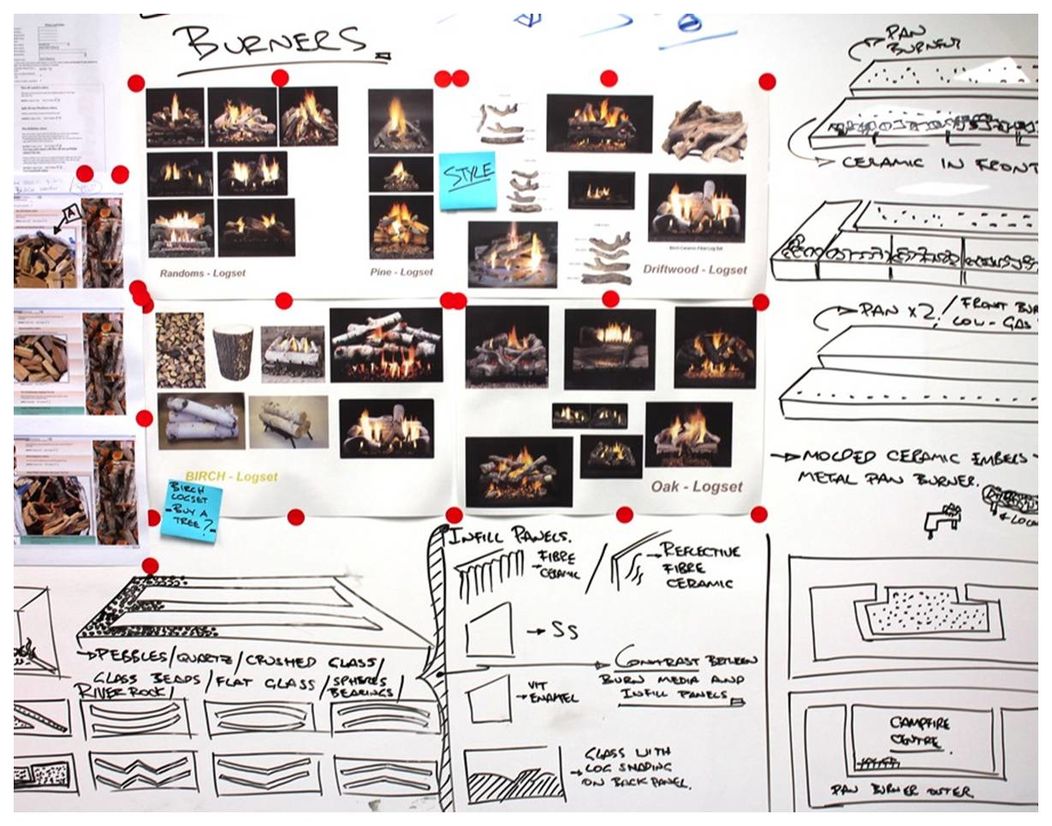 BURNERS
STYLE
Randoms - Logset
Pine - Logset
Birch Ceramic Fibre Log Set
Driftwood - Logset
BIRCH - Logset
BIRCH
LOGSET
- BUY A
TREE?
Oak - Logset
A
PAN
BURNER
CERAMIC IN FRONT
PAN X2 / FRONT BUR
LOW-GAS
MOLDED CERAMIC EMBERS
METAL PAN BURNER.
& LOG
INFILL PANELS.
FIBRE
CERAMIC
REFLECTIVE
FIBRE
CERAMIC
SS
VIT
ENAMEL
CONTRAST BETWEEN
BURN MEDIA AND
INFILL PANELS
GLASS WITH
LOG SHADING
ON BACK PANEL.
PEBBLES/QUARTZ/CRUSHED GLASS/
GLASS BEADS/FLAT GLASS/SPHERES
RIVER ROCK/ BEARINGS/
CAMPFIRE
CENTRE
PAN BURNER OUTER